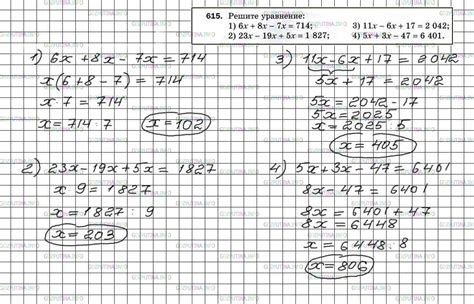 615. Решите уравнение:
1) 6x + 8x - 7x = 714;
2) 23x - 19x + 5x = 1 827;
3) 11x - 6x + 17 = 2 042;
4) 5x + 3x - 47 = 6 401.
1) 6x + 8x - 7x = 714
x(6 + 8 - 7) = 714
x · 7 = 714
x = 714 : 7
x = 102
2) 23x - 19x + 5x = 1827
x 9 = 1827
x = 1827 : 9
x = 203
3) 11x - 6x + 17 = 2042
5x + 17 = 2042
5x = 2042 - 17
5x = 2025
x = 2025 : 5
x = 405
4) 5x + 3x - 47 = 6401
8x - 47 = 6401
8x = 6401 + 47
8x = 6448
x = 6448 : 8
x = 806